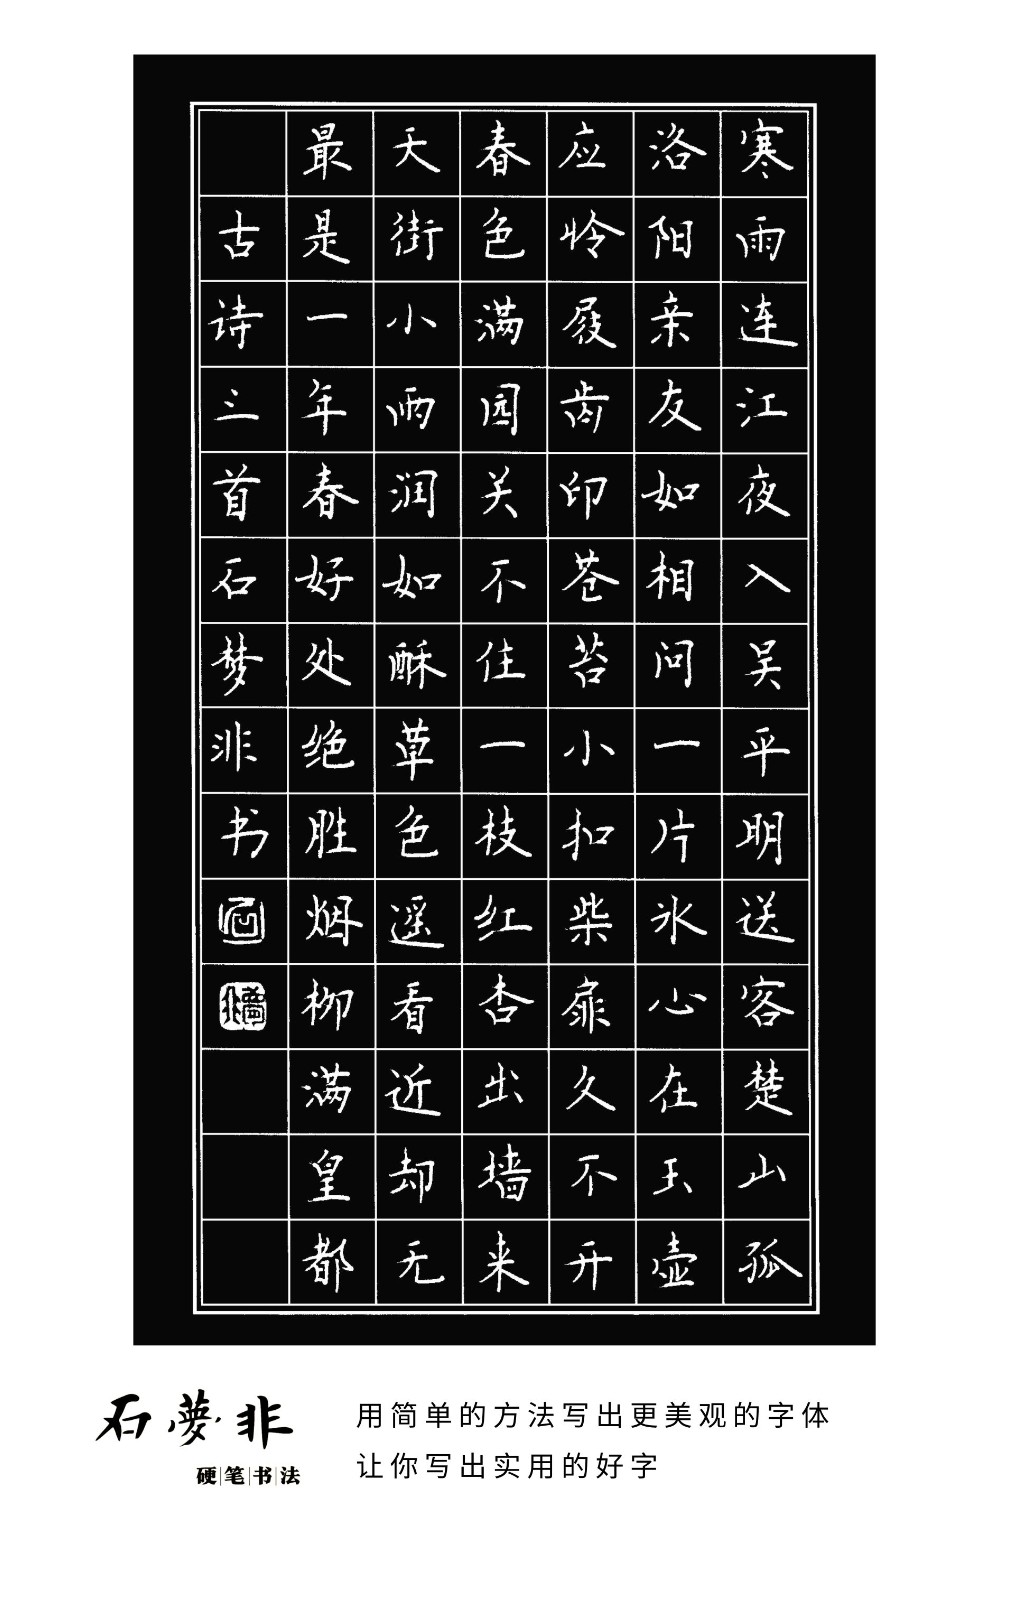 寒雨连江夜入吴平明送客楚山孤
洛阳亲友如相问一片冰心在玉壶
应怜屐齿印苍苔小扣柴扉久不开
春色满园关不住一枝红杏出墙来
天街小雨润如酥草色遥看近却无
最是一年春好处绝胜烟柳满皇都
古诗三首石梦非书
石夢非
硬笔书法
用简单的方法写出更美观的字体
让你写出实用的好字